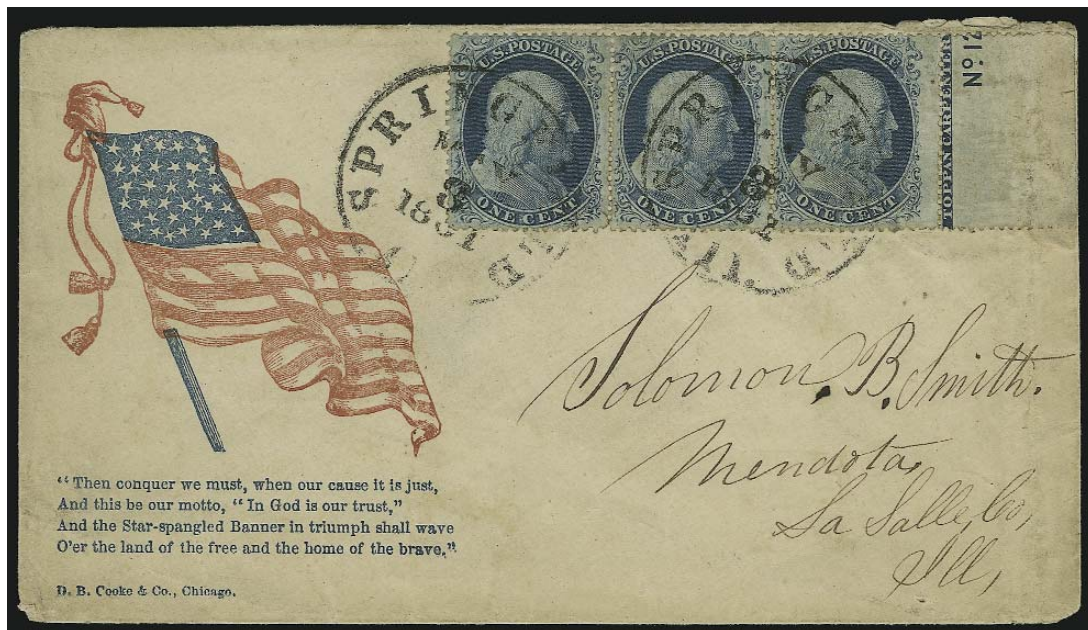 U.S. POSTAGE
ONE CENT
U.S. POSTAGE
ONE CENT
U.S. POSTAGE
ONE CENT
No. 12
TOPPAN CARPENTER
SPRINGFI
8
1861
8
Solomon. B. Smith.
Mendota,
La Salle, Co,
Ill,
“Then conquer we must, when our cause it is just,
And this be our motto, “In God is our trust,”
And the Star-spangled Banner in triumph shall wave
O'er the land of the free and the home of the brave.”
D. B. Cooke & Co., Chicago.